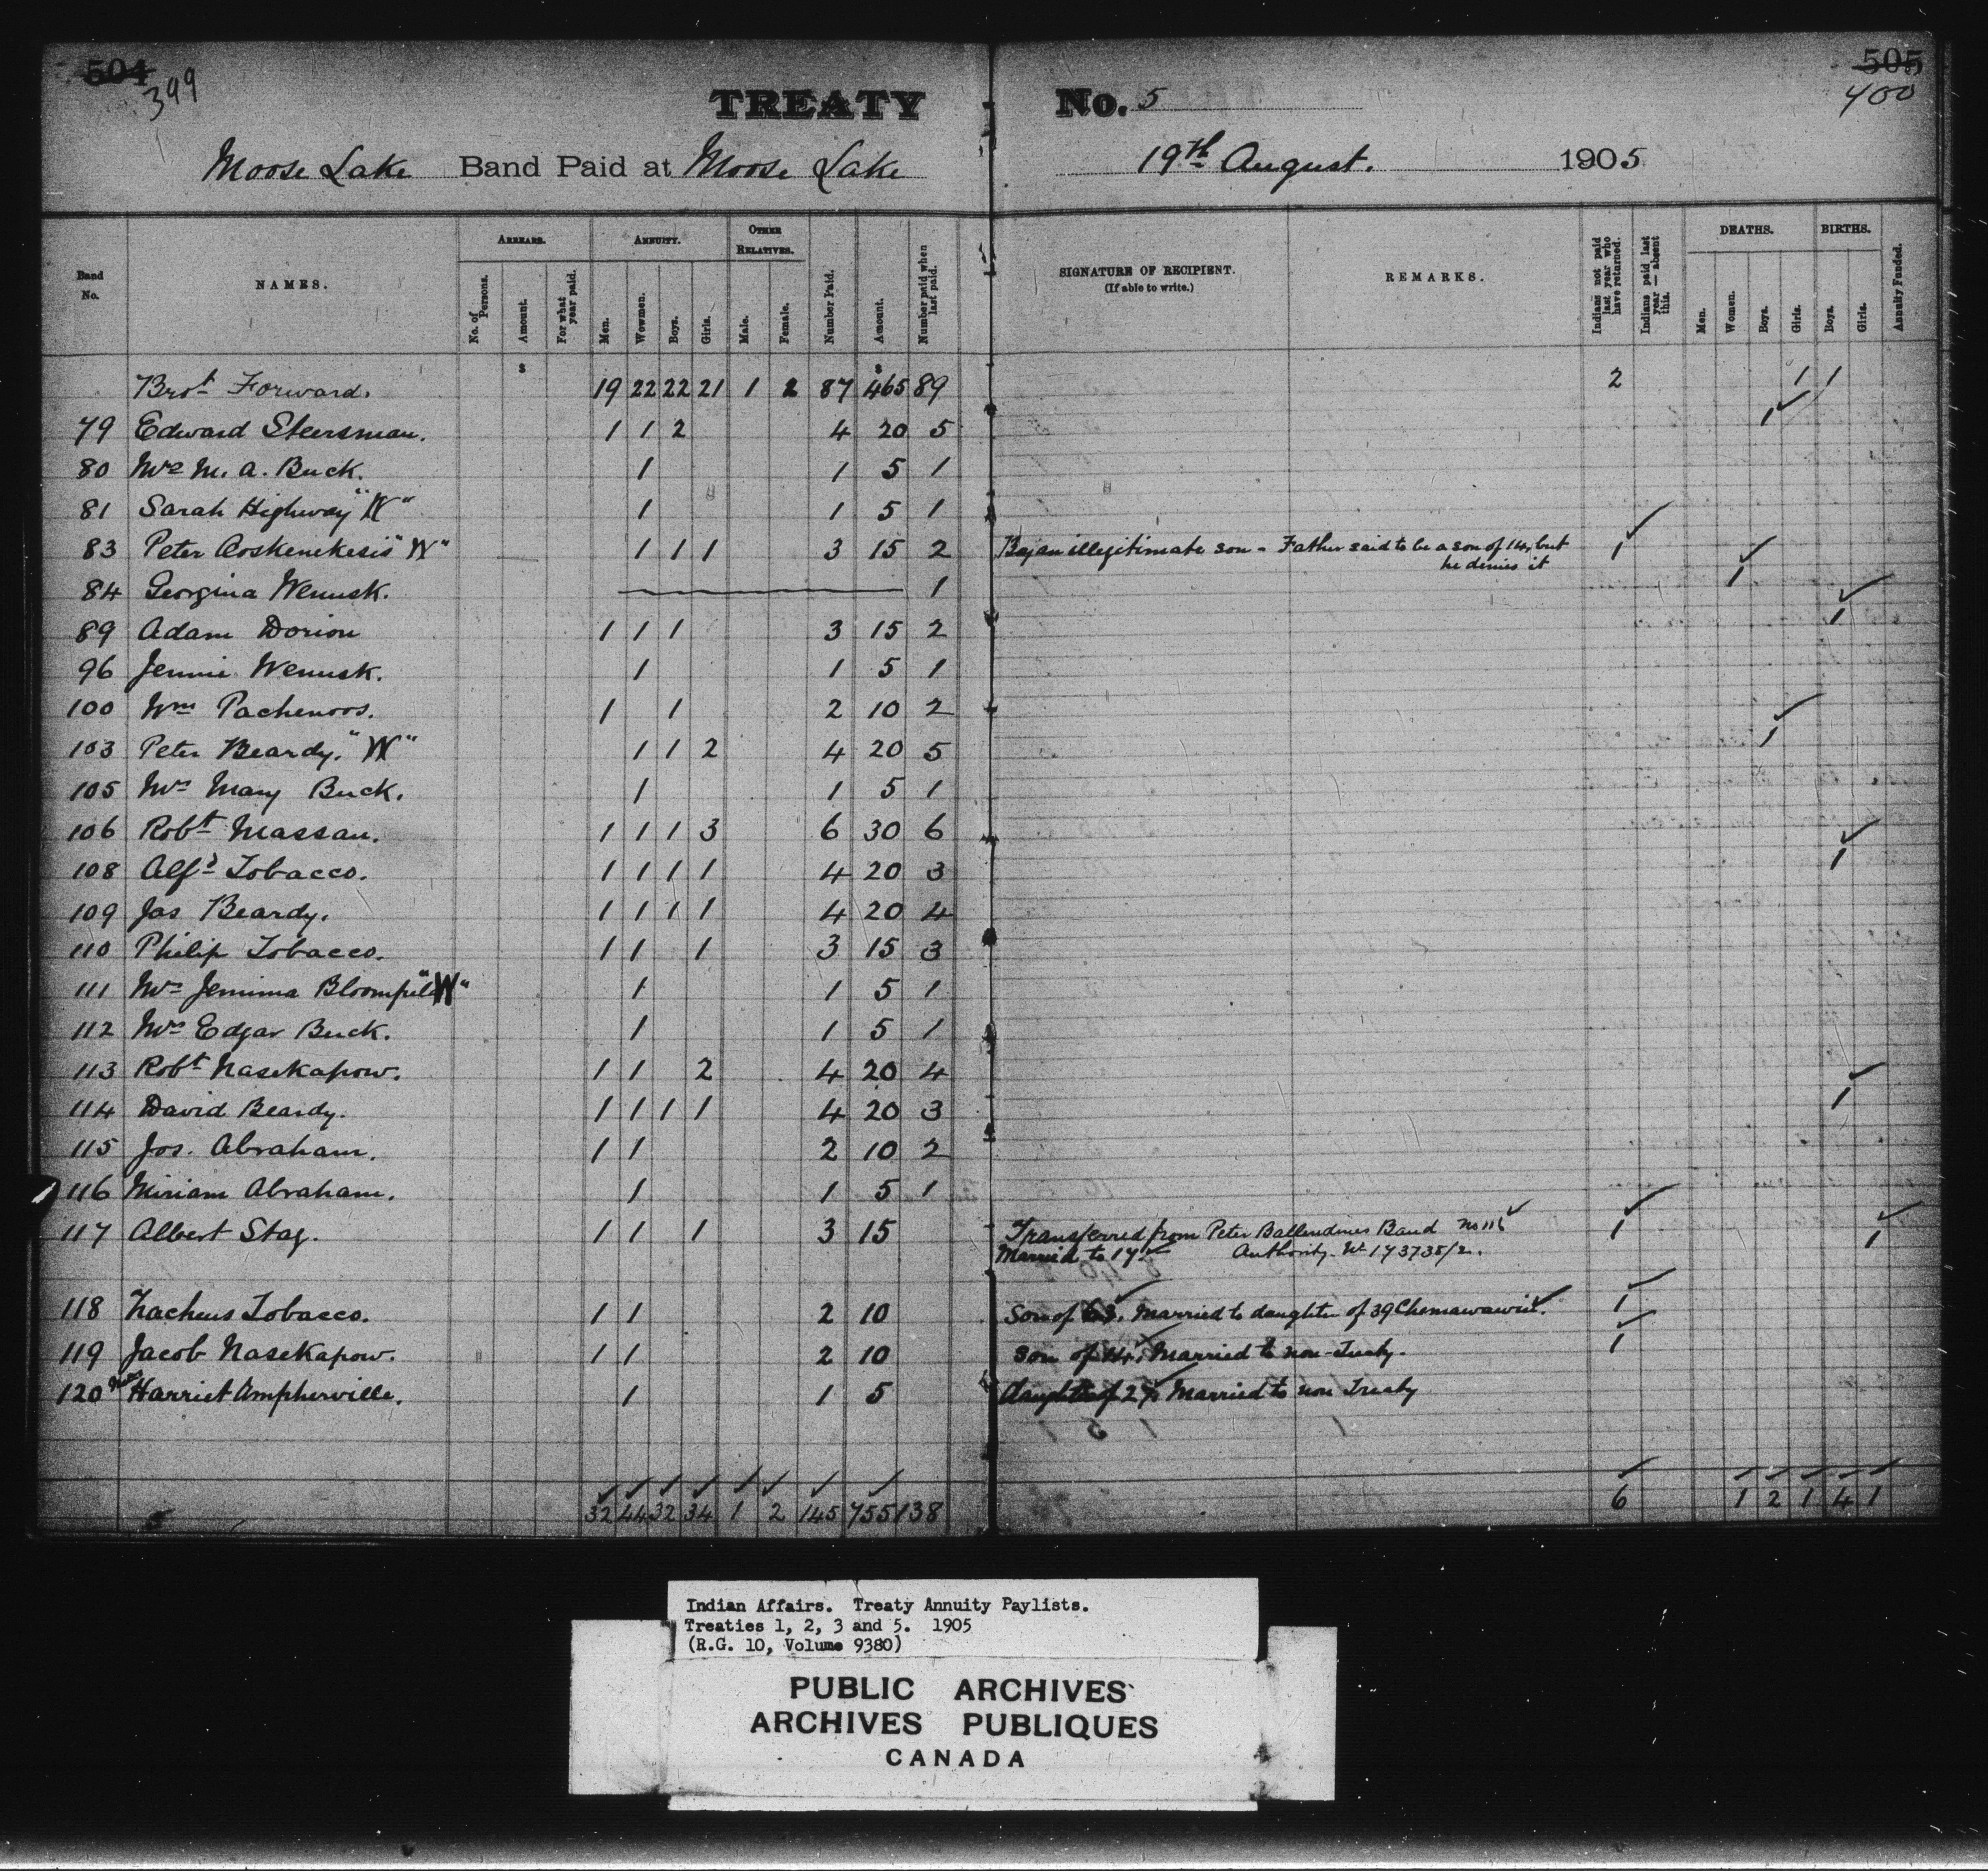 504
399
TREATY No. 5
505
400
Moose Lake Band Paid at Moose Lake 19th August. 1905
Band No.
NAMES.
ARREARS.
No. of Persons.
Amount.
For what year paid.
ANNUITY.
Men.
Wowmen.
Boys.
Girls.
OTHER RELATIVES.
Male.
Female.
Number Paid.
Amount.
Number paid when last paid.
SIGNATURE OF RECIPIENT.
(If able to write.)
REMARKS.
Indians not paid last year who have returned.
Indians paid last year — absent this.
DEATHS.
Men.
Women.
Boys.
Girls.
BIRTHS.
Boys.
Girls.
Annuity Funded.
$ $
Brot Forward. 19 22 22 21 1 2 87 465 89 2 1 1
79 Edward Steersman. 1 1 2 4 20 5 1
80 Mrs M. A. Buck. 1 1 5 1
81 Sarah Highway "W" 1 1 5 1
83 Peter Aoskenekesis "W" 1 1 1 3 15 2 Boy an illegitimate son - Father said to be a son of 14, but 1
he denies it
84 Georgina Wenusk. 1 1
89 Adam Dorion 1 1 1 3 15 2 1
96 Jennie Wenusk. 1 1 5 1
100 Wm Pachenoos. 1 1 2 10 2
103 Peter Beardy. "W" 1 1 2 4 20 5 1
105 Mrs Mary Buck. 1 1 5 1
106 Robt Massan. 1 1 1 3 6 30 6
108 Alfd Tobacco. 1 1 1 1 4 20 3 1
109 Jas Beardy. 1 1 1 1 4 20 4
110 Philip Tobacco. 1 1 1 3 15 3
111 Mrs Jemima Bloomfield "W" 1 1 5 1
112 Mrs Edgar Buck. 1 1 5 1
113 Robt Nasekapow. 1 1 2 4 20 4
114 David Beardy. 1 1 1 1 4 20 3 1
115 Jos. Abraham. 1 1 2 10 2
116 Miriam Abraham. 1 1 5 1
117 Albert Stag. 1 1 1 3 15 Transferred from Peter Ballendines Band No 116 1 1
Married to 17 Authority No 173735/2.
118 Zacheus Tobacco. 1 1 2 10 Son of 63. Married to daughter of 39 Chemawawin. 1
119 Jacob Nasekapow. 1 1 2 10 Son of 14. Married to non-Treaty. 1
120 Harriet Ampherville. 1 1 5 daughter of 27. Married to non Treaty
32 44 32 34 1 2 145 755 138 6 1 2 1 4 1
Indian Affairs. Treaty Annuity Paylists.
Treaties 1, 2, 3 and 5. 1905
(R.G. 10, Volume 9380)
PUBLIC ARCHIVES
ARCHIVES PUBLIQUES
CANADA